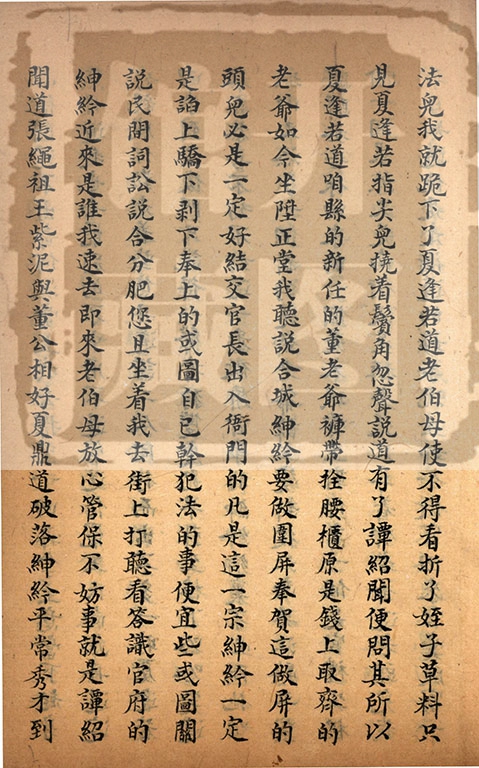 法兒我就跪下了夏逢若道老伯母使不得看折了姪子草料只
見夏逢若指尖兒撓着鬢角忽聲說道有了譚紹聞便問其所以
夏逢若道咱縣的新任的董老爺褲帶拴腰櫃原是錢上取齊的
老爺如今坐陞正堂我聽說合城紳衿要做圍屏奉賀這做屏的
頭兒必是一定好結交官長出入衙門的凡是這一宗紳衿一定
是諂上驕下剥下奉上的或圖自已幹犯法的事便宜些或圖關
說民間詞訟說合分肥您且坐着我去街上打聽看答識官府的
紳衿近來是誰我速去即來老伯母放心管保不妨事就是譚紹
聞道張繩祖王紫泥與董公相好夏鼎道破落紳衿平常秀才到